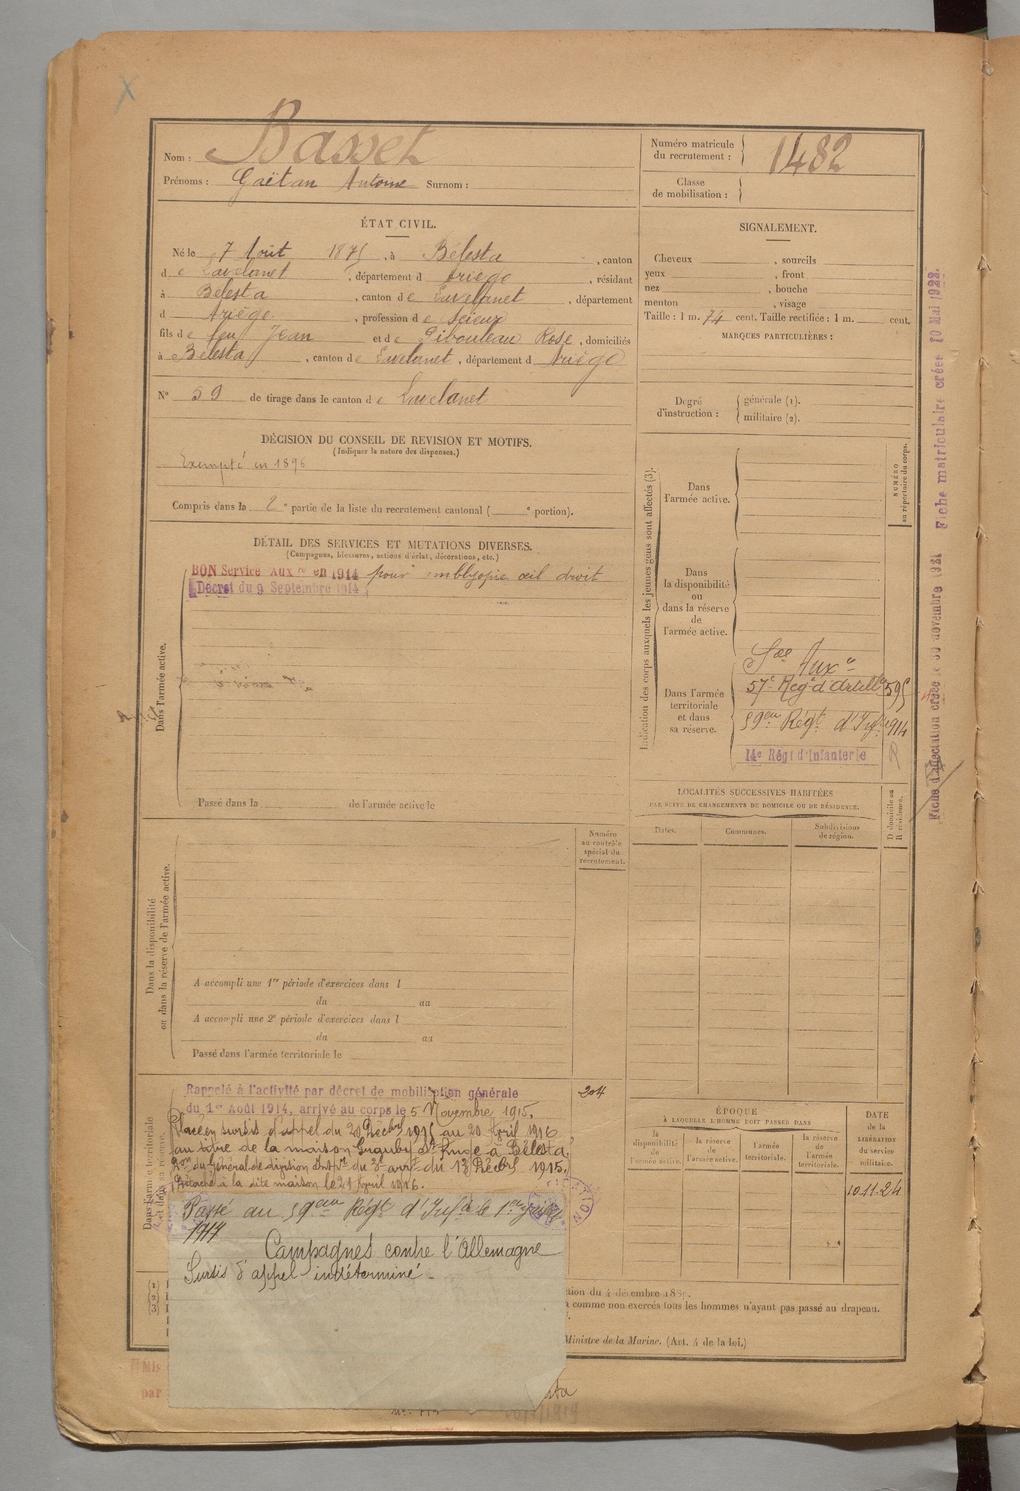 Nom : Basset
Prénoms : Gaëtan Antoine Surnom :
Numéro matricule du recrutement : 1482
Classe de mobilisation :
ÉTAT CIVIL.
Né le 7 Août 1875, à Bélesta, canton
de Lavelanet, département d Ariège, résidant
à Bélesta, canton de Lavelanet, département
d Ariège, profession de Scieur
fils de feu Jean et de Pibouleau Rose, domiciliés
à Bélesta, canton de Lavelanet, département d Ariège
N° 59 de tirage dans le canton de Lavelanet
DÉCISION DU CONSEIL DE REVISION ET MOTIFS.
(Indiquer la nature des dispenses.)
Exempté en 1896
Compris dans la 2e partie de la liste du recrutement cantonal ( e portion).
SIGNALEMENT.
Cheveux , sourcils
yeux , front
nez , bouche
menton , visage
Taille : 1 m. 74 cent. Taille rectifiée : 1 m. cent.
MARQUES PARTICULIÈRES :
Degré d'instruction : générale (1).
militaire (2).
DÉTAIL DES SERVICES ET MUTATIONS DIVERSES.
(Campagnes, blessures, actions d'éclat, décorations, etc.)
Dans l'armée active.
BON Service Auxre en 1914 pour amblyopie œil droit
Décret du 9 Septembre 1914
Passé dans la de l'armée active le
Indication des corps auxquels les jeunes gens sont affectés (3).
NUMÉRO au répertoire du corps.
Dans l'armée active.
Dans la disponibilité ou dans la réserve de l'armée active.
Dans l'armée territoriale et dans sa réserve.
Sce Auxre
57e Régt d'Artillie 595
59eme Régt d'Infie 914
14e Régt d'Infanterie
Fiche d'affectation créée le 30 novembre 1921
Fiche matriculaire créée 10 Mai 1922.
LOCALITÉS SUCCESSIVES HABITÉES
PAR SUITE DE CHANGEMENTS DE DOMICILE OU DE RÉSIDENCE.
Dates. Communes. Subdivisions de région.
D domicile ou R résidence.
Numéro au contrôle spécial du recrutement.
Dans la disponibilité ou dans la réserve de l'armée active.
A accompli une 1re période d'exercices dans l
du au
A accompli une 2e période d'exercices dans l
du au
Passé dans l'armée territoriale le
Dans l'armée territoriale et dans sa réserve.
Rappelé à l'activité par décret de mobilisation générale
du 1er Août 1914, arrivé au corps le 5 Novembre 1915.
204
Placé en sursis d'appel du 20 Décbre 1915 au 20 Avril 1916
au titre de la maison à Bélesta,
du Général de division du 13 Décbre 1915.
Détaché à la dite maison le 21 Avril 1916.
Passé au 59eme Régt d'Infie le 1er
1917
Campagnes contre l'Allemagne
Sursis d'appel indéterminé.
ÉPOQUE
À LAQUELLE L'HOMME DOIT PASSER DANS
la disponibilité de l'armée active. la réserve de l'armée active. l'armée territoriale. la réserve de l'armée territoriale.
DATE de la LIBÉRATION du service militaire.
10.11.24
(1)
(2)
(3)
comme non exercés tous les hommes n'ayant pas passé au drapeau.
Ministre de la Marine. (Art. 4 de la loi.)
Mis
par